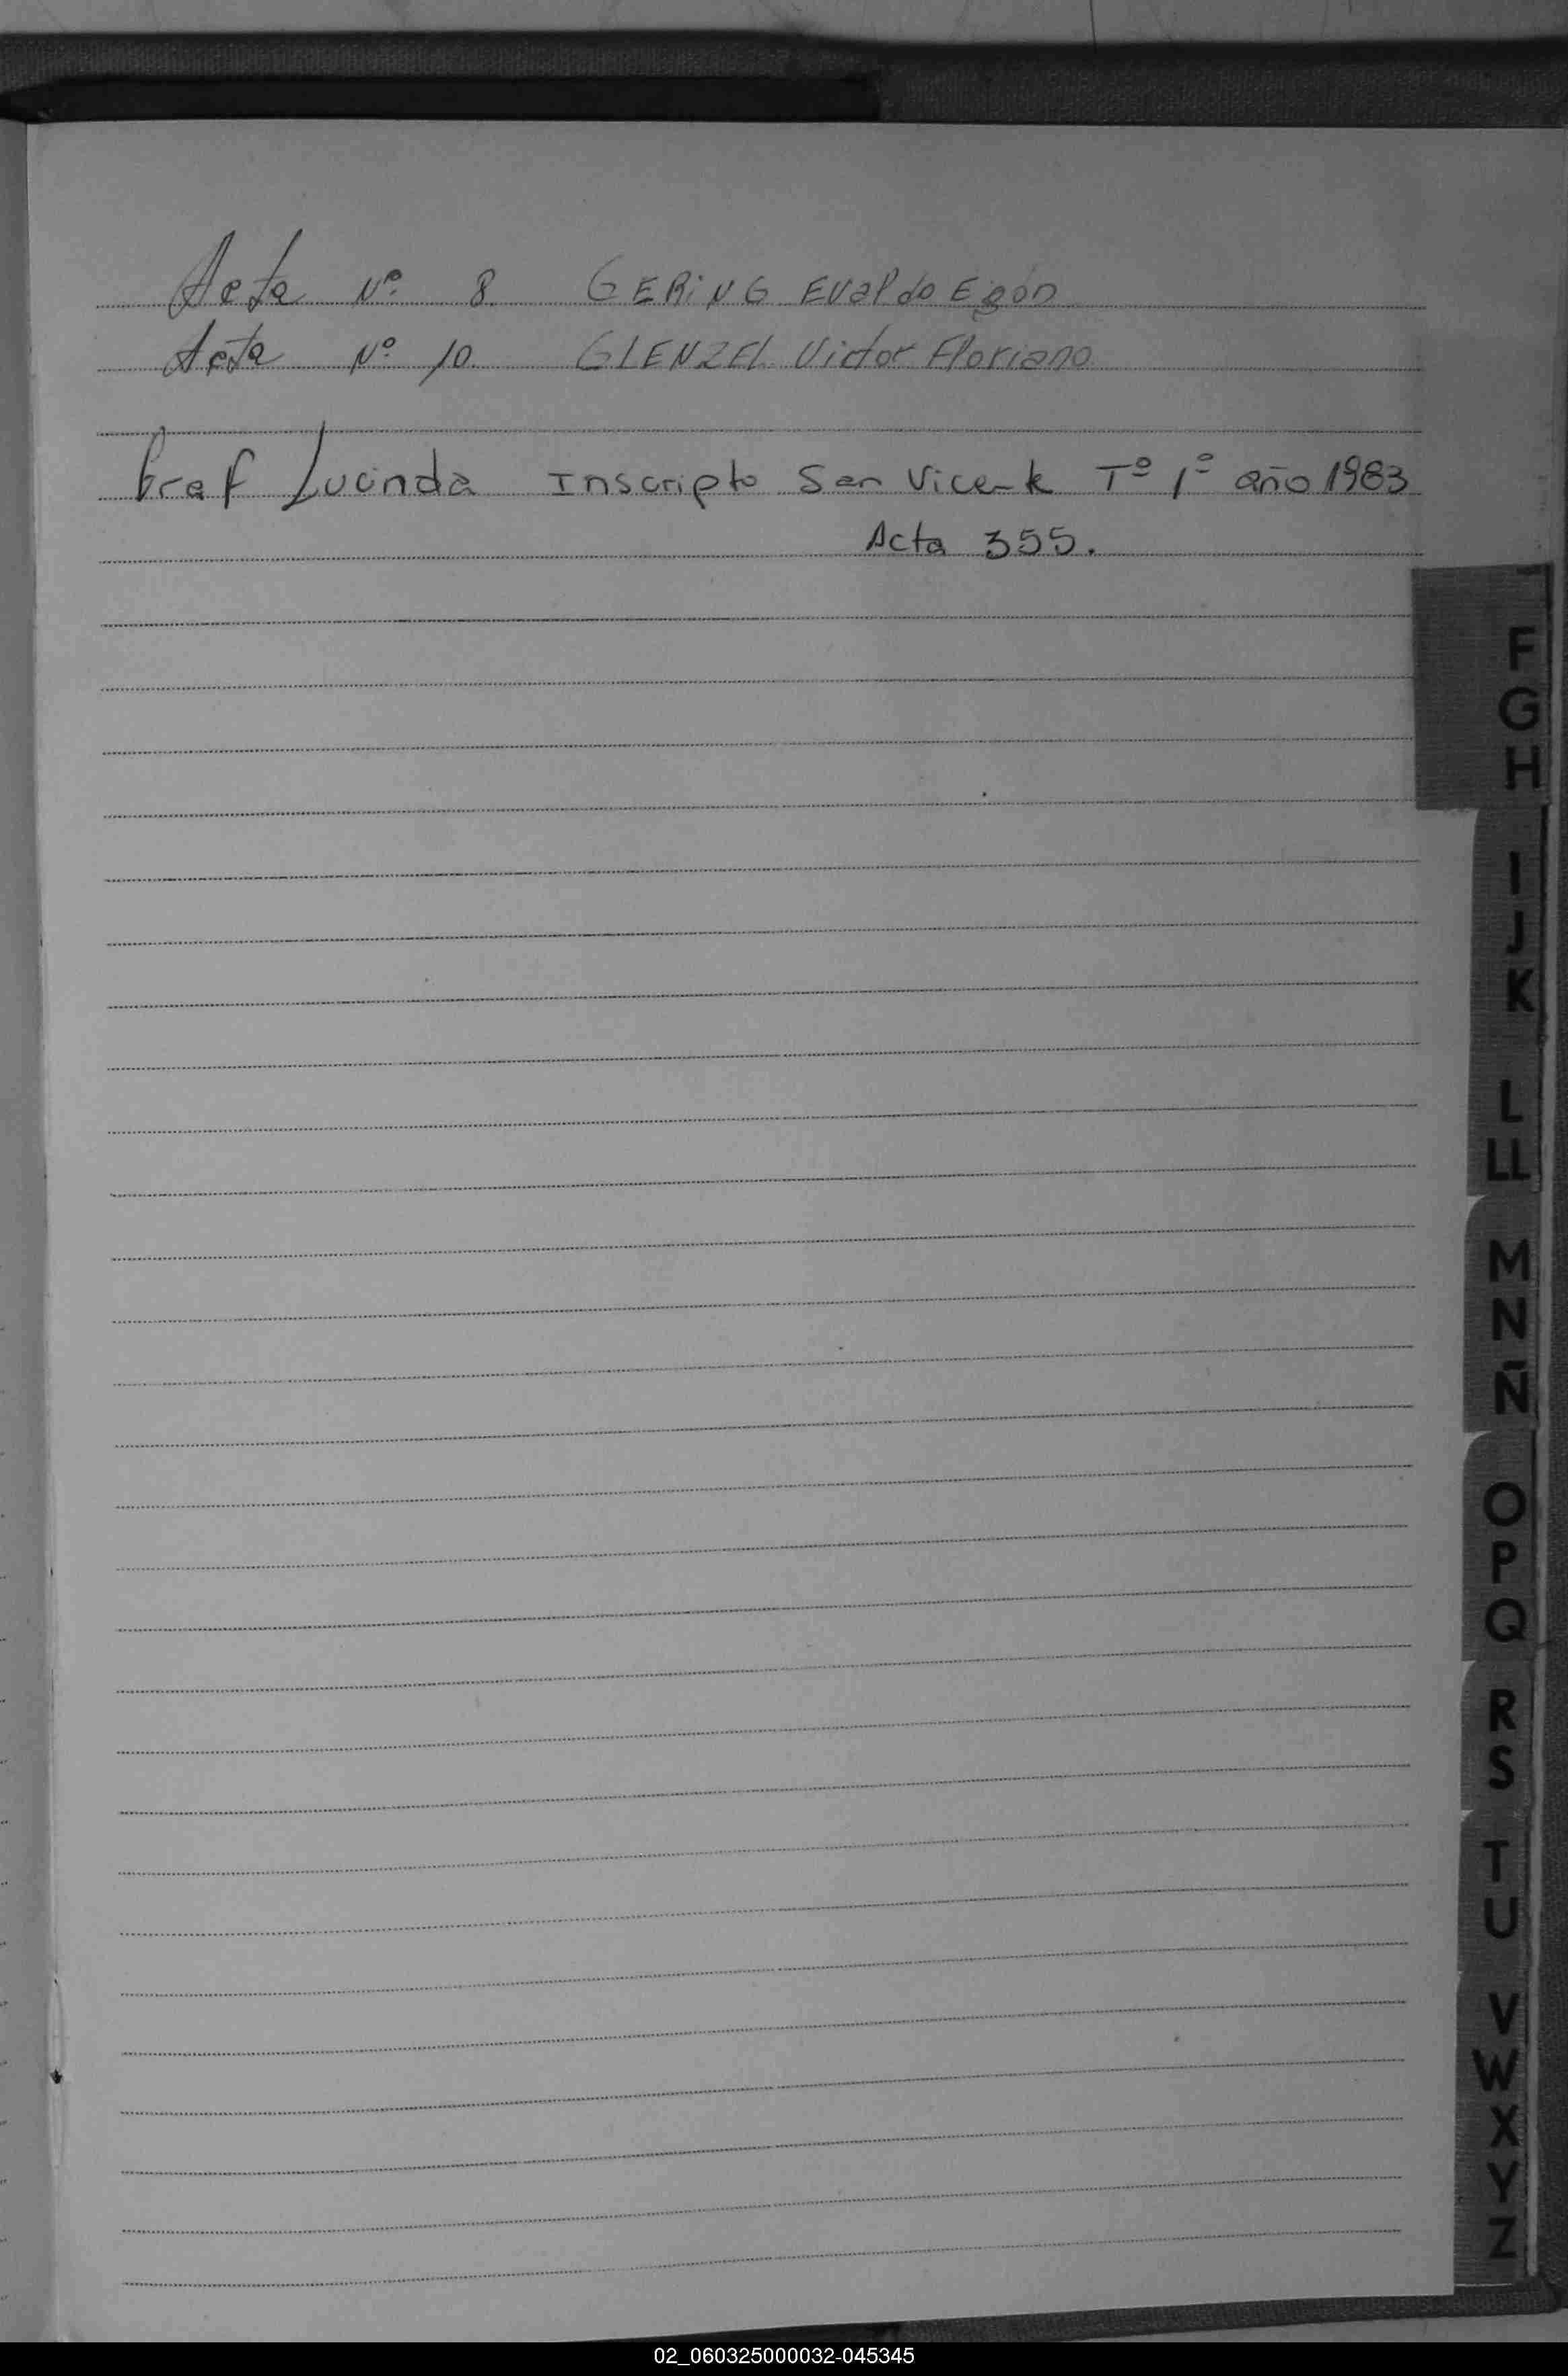 Acta Nº 8. GERiNG EValdo Egón
Acta Nº 10. GLENZEL Victor Floriano
Graf Lucinda Inscripto San Vicente Tº 1º año 1983
Acta 355.
F
G
H
I
J
K
L
LL
M
N
Ñ
O
P
Q
R
S
T
U
V
W
X
Y
Z
02_060325000032-045345